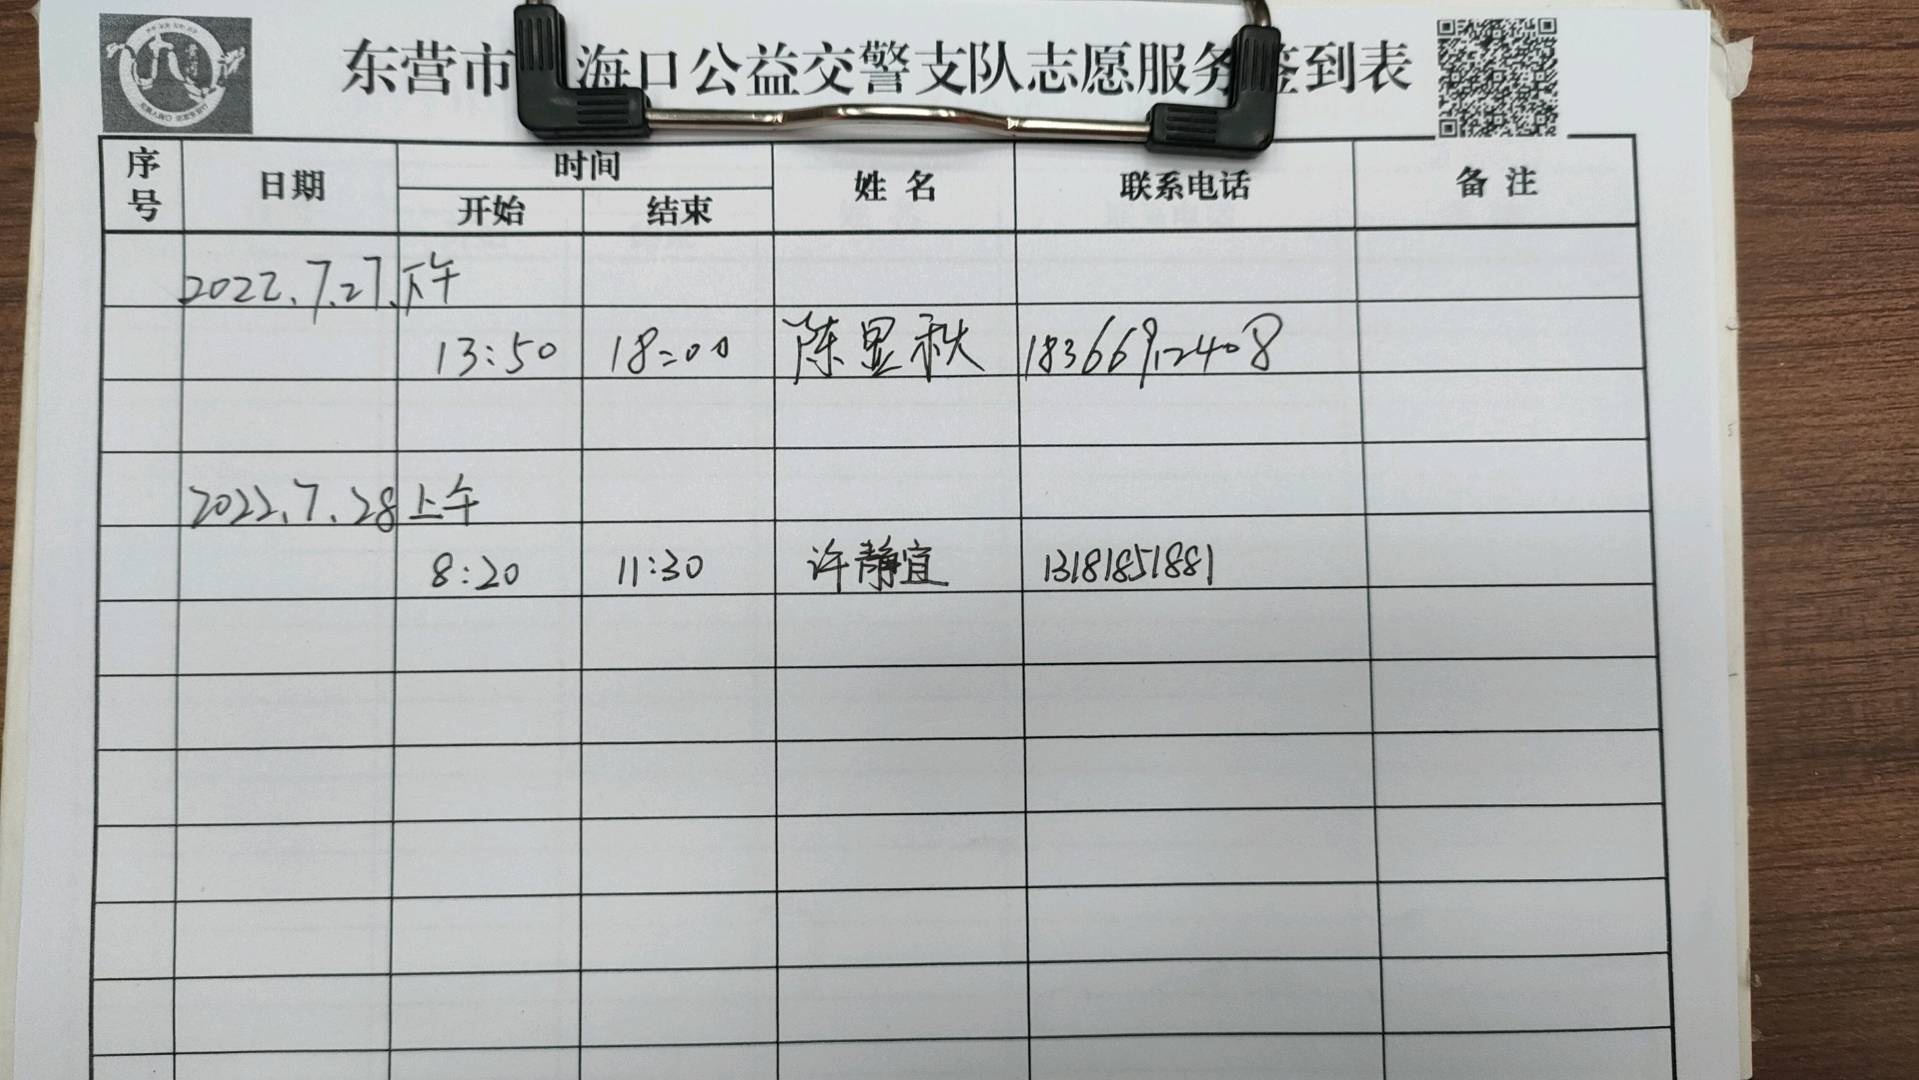 东营市 海口公益交警支队志愿服务签到表
序号 日期 时间 姓名 联系电话 备注
开始 结束
2022.7.27.下午
13:50 18:00 陈显秋 18366912408
2022.7.28上午
8:20 11:30 许静宜 13181851881